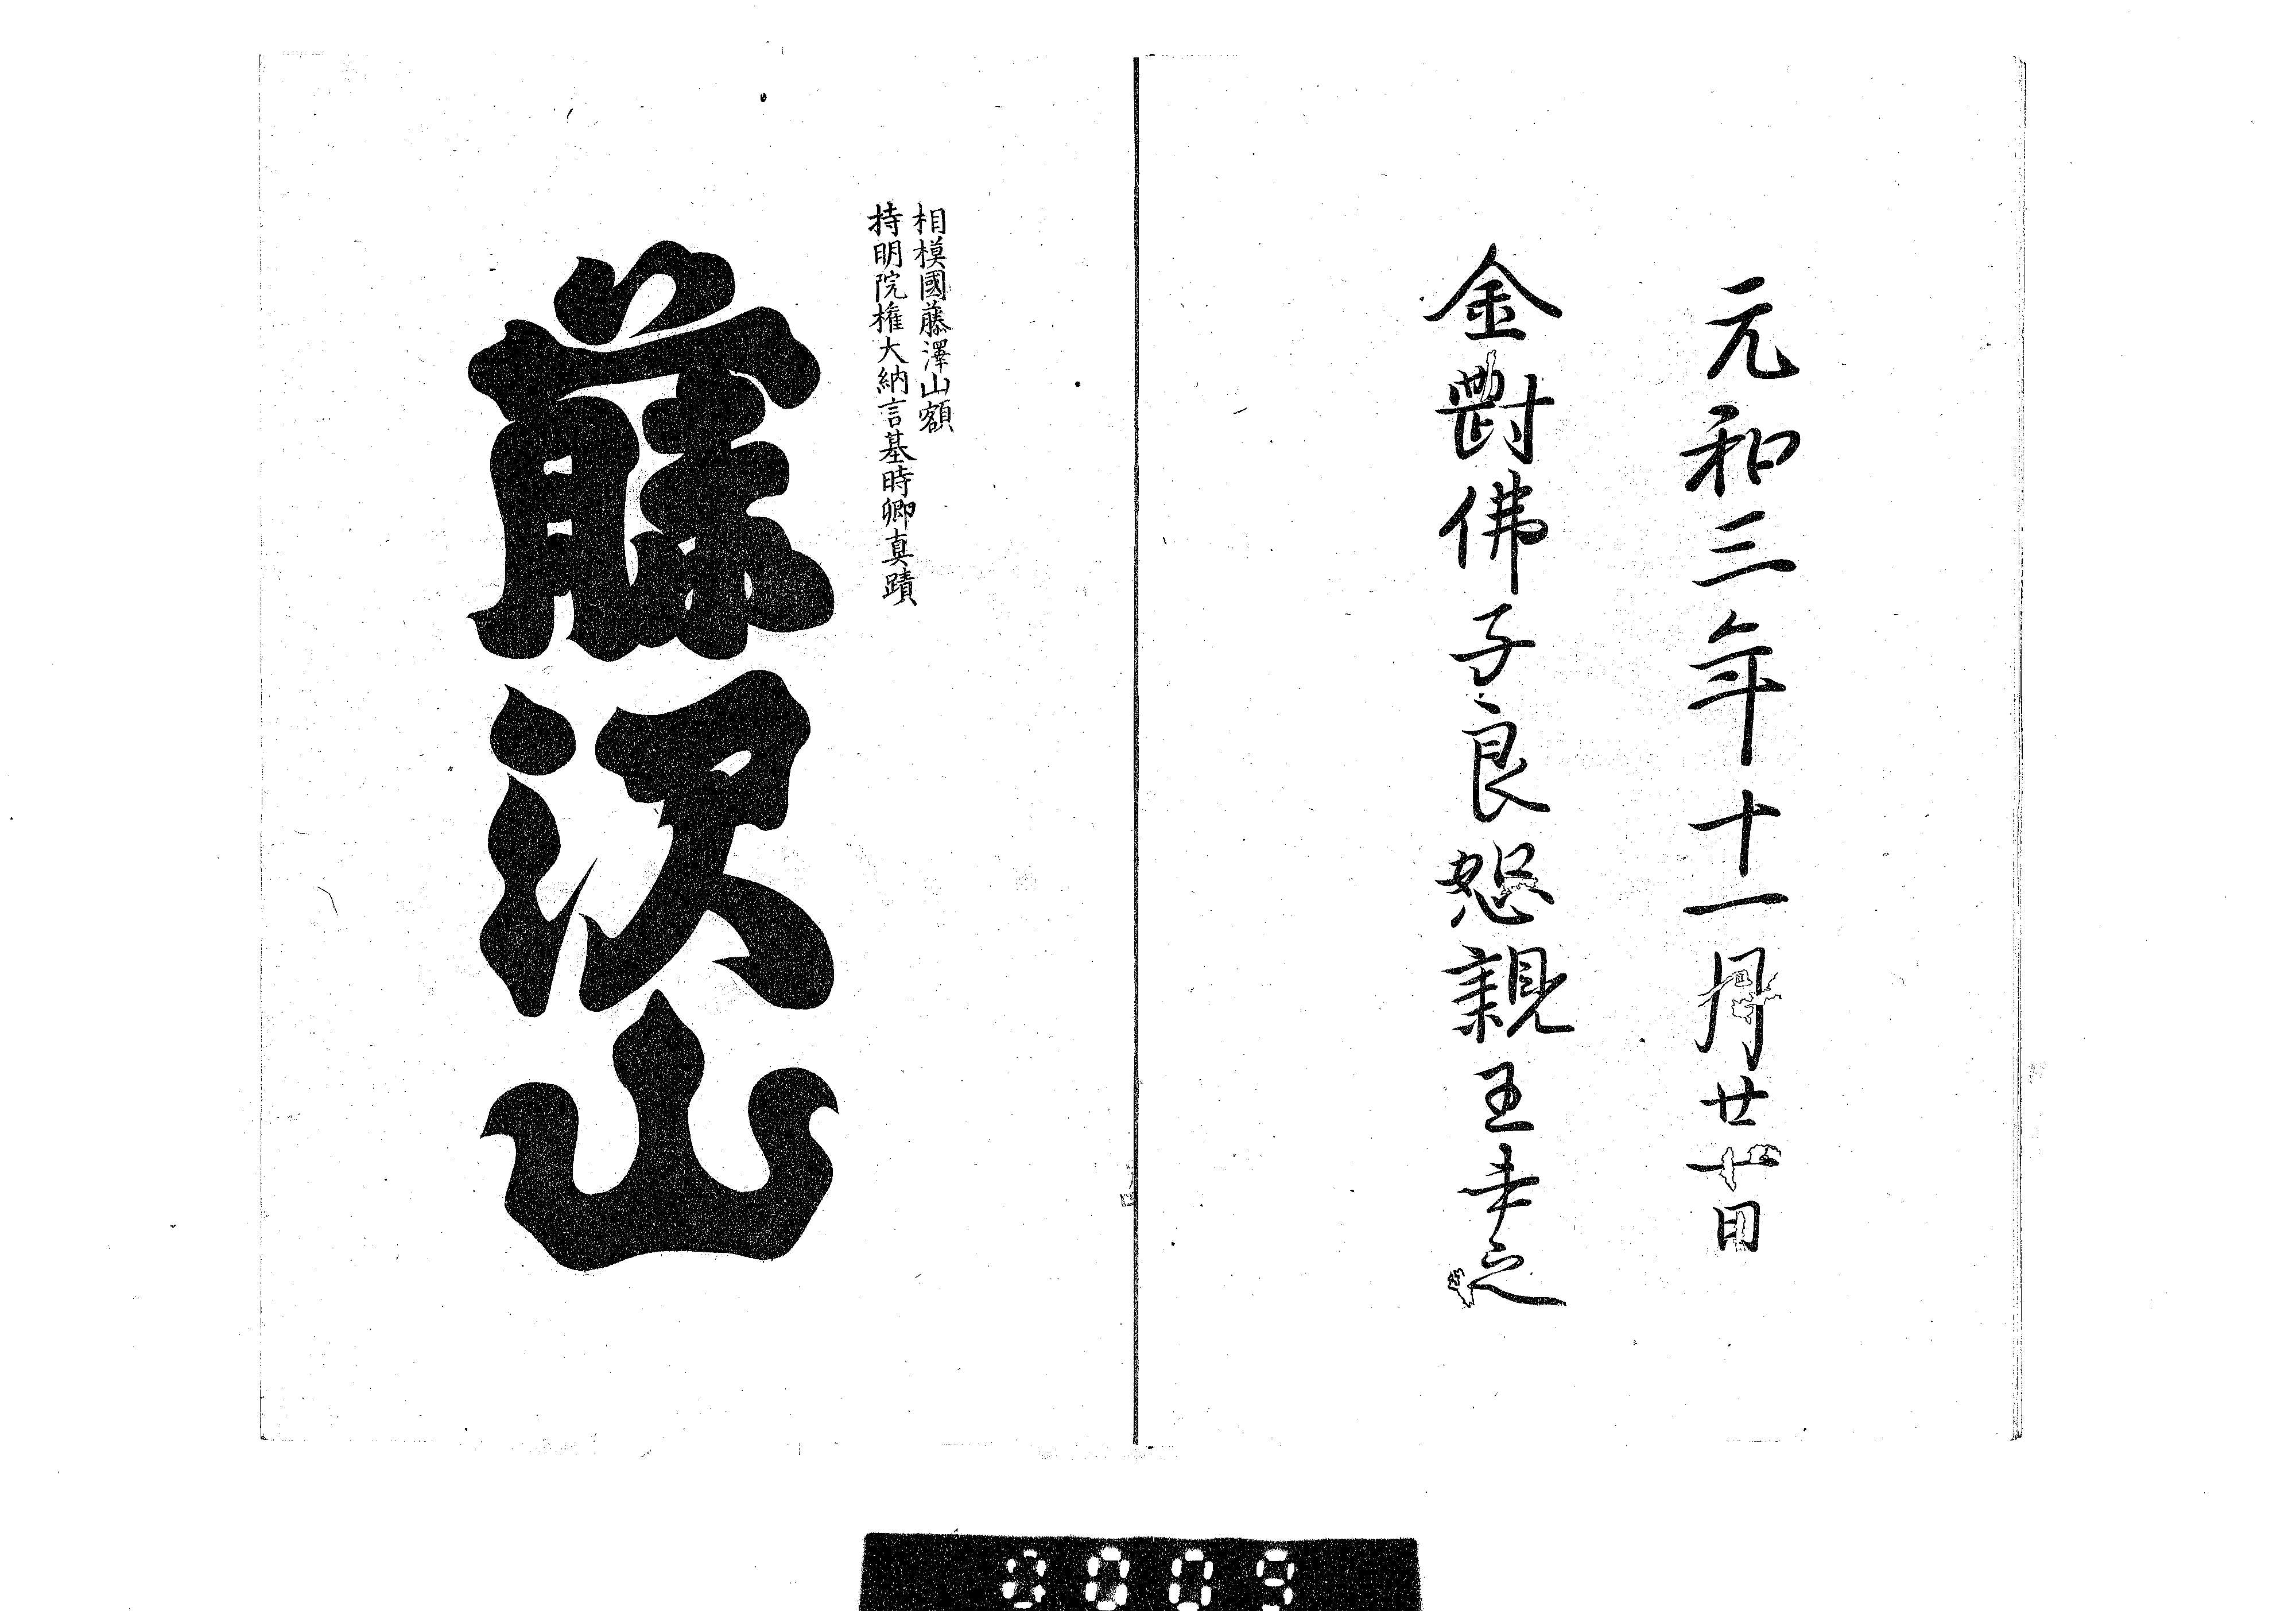 元和三年十一月廿日
金剛佛子良恕親王書之
相模國藤澤山額
持明院権大納言基時卿真蹟
藤沢山
0009